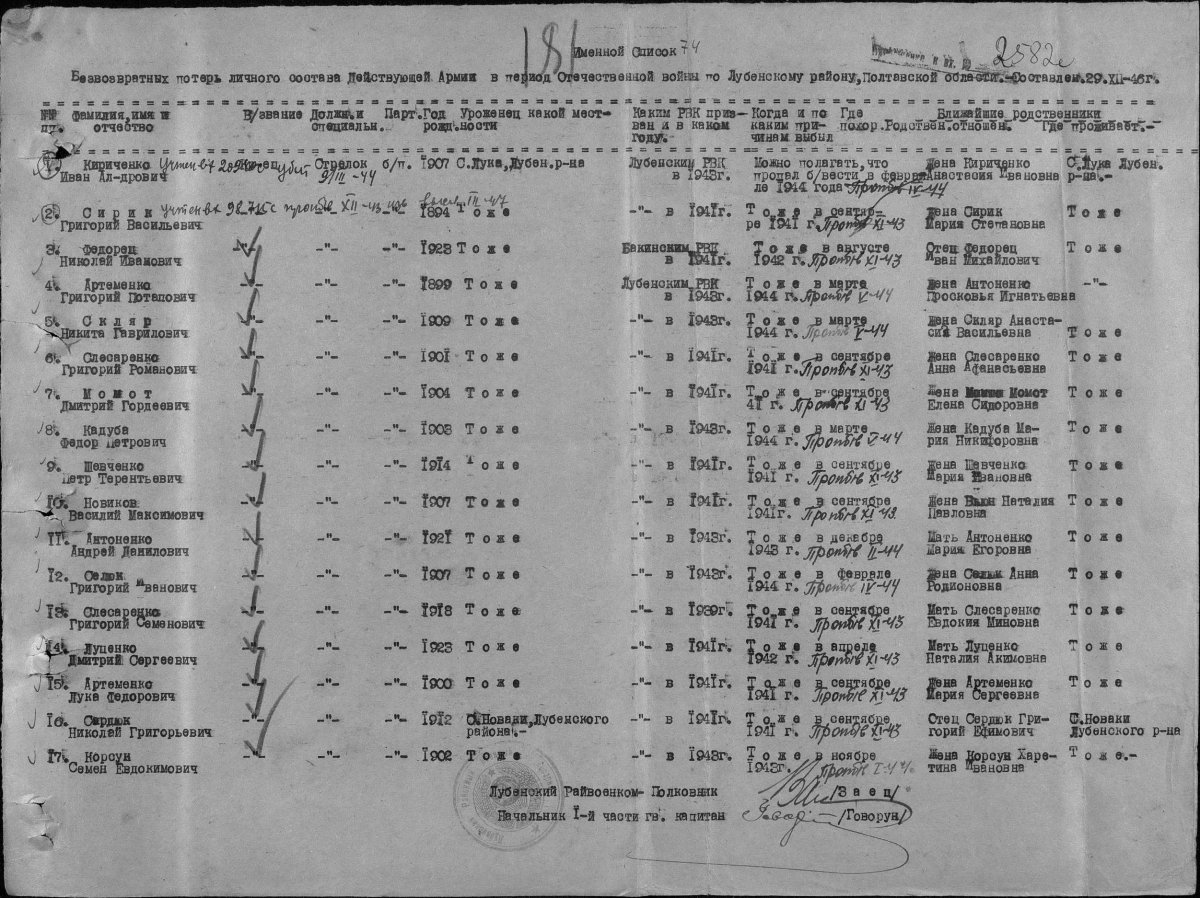 181
Именной Список 74
2582с
Безвозвратных потерь личного состава Действующей Армии в период Отечественной войны по Лубенскому району, Полтавской области.-Составлен.29.XII-46г.
№№ Фамилия,имя и В/звание Должн.и Парт.Год Уроженец какой мест- Каким РВК приз- Когда и по Где Ближайшие родственники
пп. отчество специальн. рожд. ности ван и в каком каким при- похор.Родствен.отношен. Где проживает.-
году. чинам выбыл
1. Кириченко учтен вх Стрелок б/п. 1907 С.Лука,Лубен.р-на Лубенским РВК Можно полагать, что Жена Кириченко С.Лука Лубен.
Иван Ал-дрович 9/III-44 в 1943г. пропал б/вести в февра Анастасия Ивановна р-на.-
ле 1944 года Проп б/в IV-44
2. Сирик учтен вх XII-43 1894 Тоже -"- в 1941г. Тоже в сентяб- Жена Сирик Тоже
Григорий Васильевич ре 1941 г. Проп б/в XI-43 Мария Степановна
3. Федорец -"- -"- -"- 1923 Тоже Бакинским РВК Тоже в августе Отец Федорец Тоже
Николай Иванович в 1941г. 1942 г. Проп б/в XI-43 Иван Михайлович
4. Артеменко -"- -"- -"- 1899 Тоже Лубенским РВК Тоже в марте Жена Антоненко -"-
Григорий Потапович в 1943г. 1944 г. Проп б/в V-44 Просковья Игнатьевна
5. Скляр -"- -"- -"- 1909 Тоже -"- в 1943г. Тоже в марте Жена Скляр Анаста-
Никита Гаврилович 1944 г. Проп б/в V-44 сия Васильевна Тоже
6. Слесаренко -"- -"- -"- 1901 Тоже -"- в 1941г. Тоже в сентябре Жена Слесаренко Тоже
Григорий Романович 1941 г. Проп б/в XI-43 Анна Афанасьевна
7. Момот -"- -"- -"- 1904 Тоже -"- в 1941г. Тоже в сентябре Жена Момот Тоже
Дмитрий Гордеевич 41 г. Проп б/в XI-43 Елена Сидоровна
8. Кадуба -"- -"- -"- 1903 Тоже -"- в 1943г. Тоже в марте Жена Кадуба Ма- Тоже
Федор Петрович 1944 г. Проп б/в V-44 рия Никифоровна
9. Шевченко -"- -"- -"- 1914 Тоже -"- в 1941г. Тоже в сентябре Жена Шевченко Тоже
Петр Терентьевич 1941 г. Проп б/в XI-43 Мария Ивановна
10. Новиков -"- -"- -"- 1907 Тоже -"- в 1941г. Тоже в сентябре Жена Наталия Тоже
Василий Максимович 1941г. Проп б/в XI-43 Павловна
11. Антоненко -"- -"- -"- 1921 Тоже -"- в 1943г. Тоже в декабре Мать Антоненко Тоже
Андрей Данилович 1943 г. Проп б/в II-44 Мария Егоровна
12. Селюк -"- -"- -"- 1907 Тоже -"- в 1943г. Тоже в феврале Жена Селюк Анна Тоже
Григорий Иванович 1944 г. Проп б/в IV-44 Родионовна
13. Слесаренко -"- -"- -"- 1918 Тоже -"- в 1939г. Тоже в сентябре Мать Слесаренко Тоже
Григорий Семенович 1941 г. Проп б/в XI-43 Евдокия Миновна
14. Луценко -"- -"- -"- 1923 Тоже -"- в 1941г. Тоже в апреле Мать Луценко Тоже
Дмитрий Сергеевич 1942 г. Проп б/в XI-43 Наталия Акимовна
15. Артеменко -"- -"- -"- 1900 Тоже -"- в 1941г. Тоже в сентябре Жена Артеменко Тоже
Лука Федорович 1941 г. Проп б/в XI-43 Мария Сергеевна
16. Сердюк -"- -"- -"- 1912 С.Новаки,Лубенского -"- в 1941г. Тоже в сентябре Отец Сердюк Гри- С.Новаки
Николай Григорьевич района.- 1941 г. Проп б/в XI-43 горий Ефимович Лубенского р-на
17. Корсун -"- -"- -"- 1902 Тоже -"- в 1943г. Тоже в ноябре Жена Корсун Харе- Тоже.-
Семен Евдокимович 1943г. Проп б/в I-44 тина Ивановна
Лубенский Райвоенком- Полковник /Заец/
Начальник 1-й части гв. капитан /Говорун/